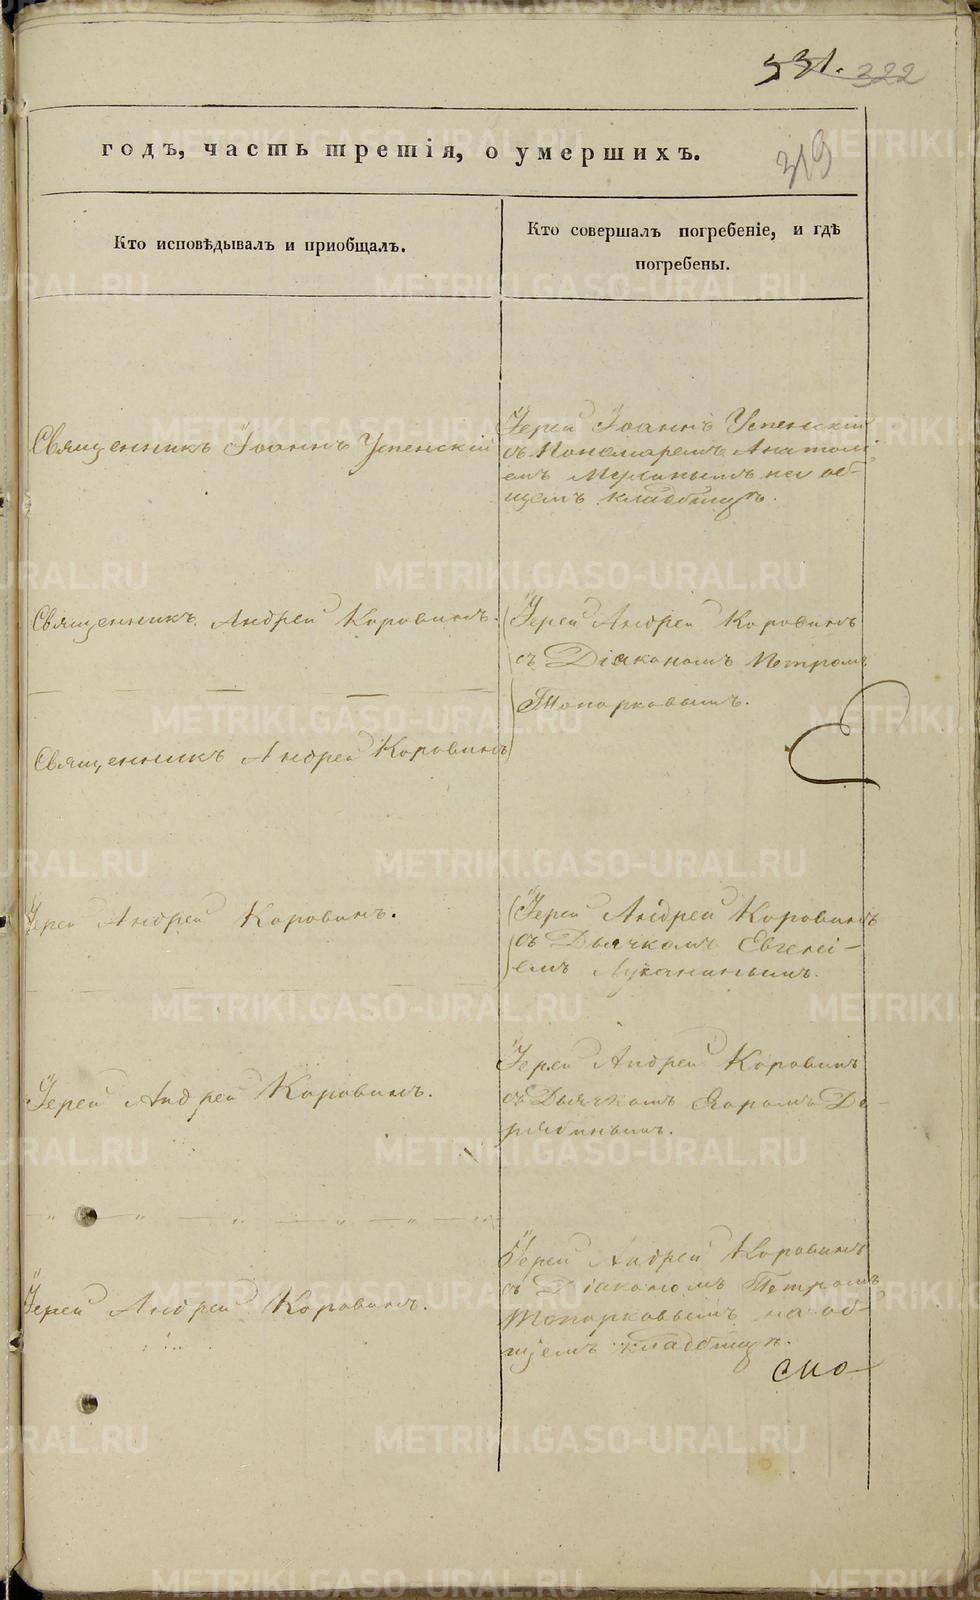 531. 322
319
годъ, часть третія, о умершихъ.
Кто исповѣдывалъ и пріобщалъ.
Кто совершалъ погребеніе, и гдѣ
погребены.
Священникъ Іоаннъ Успенскій
Іерей Іоаннъ Успенскій
съ Пономаремъ Анатолі
емъ на об-
щемъ кладбищѣ.
Священникъ Андрей Коровинъ.
Іерей Андрей Коровинъ
съ Діакономъ Петромъ
Топорковымъ.
Священникъ Андрей Коровинъ
Іерей Андрей Коровинъ.
Іерей Андрей Коровинъ
съ Дьячкомъ Евгені-
емъ Луканинымъ.
Іерей Андрей Коровинъ.
Іерей Андрей Коровинъ
съ Дьячкомъ Де-
рябинымъ.
Іерей Андрей Коровинъ.
Іерей Андрей Коровинъ
съ Діакономъ Петромъ
Топорковымъ на об-
щемъ кладбищѣ.
METRIKI.GASO-URAL.RU